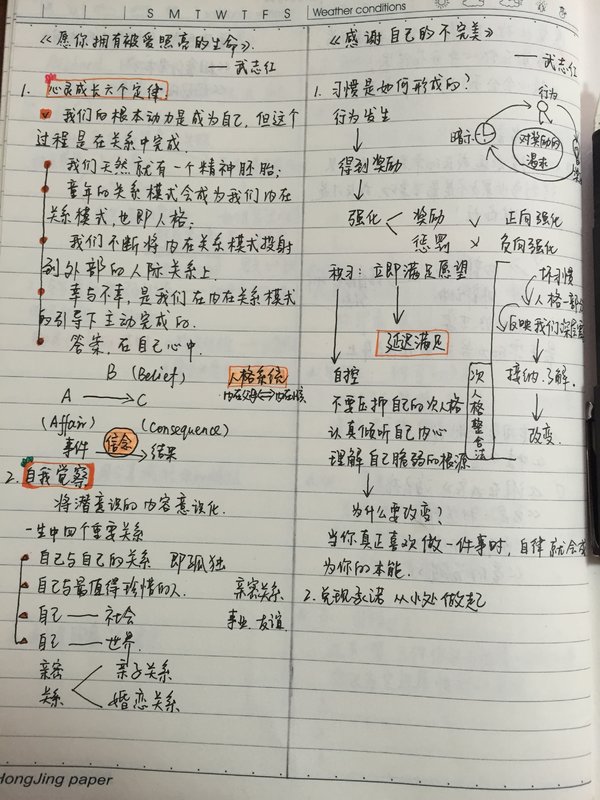 S M T W T F S
Weather conditions
《愿你拥有被爱照亮的生命》
—— 武志红
1. 心灵成长六个定律:
我们的根本动力是成为自己,但这个
过程是在关系中完成.
我们天然就有一个精神胚胎;
童年的关系模式会成为我们内在
关系模式,也即人格;
我们不断将内在关系模式投射
到外部的人际关系上.
幸与不幸,是我们在内在关系模式
的引导下主动完成的.
答案,在自己心中.
B (Belief)
人格系统
内在父母⟺内在小孩
A → C
(Affair) (Consequence)
事件 信念 → 结果
2. 自我觉察
将潜意识的内容意识化.
一生中四个重要关系
自己与自己的关系 即孤独
自己与最值得珍惜的人. 亲密关系
自己 —— 社会 事业.友谊
自己 —— 世界.
亲密 亲子关系
关系 婚恋关系
HongJing paper
《感谢自己的不完美》
—— 武志红
1. 习惯是如何形成的?
行为
行为发生
暗示
对奖励的
渴求
得到奖励
强化 奖励 正向强化
惩罚 负向强化
立即满足愿望
坏习惯
人格一部分
反映我们深层
延迟满足
自控
次人格整合法
接纳.了解.
不要压抑自己的次人格
认真倾听自己内心
改变.
理解自己脆弱的根源
为什么要改变?
当你真正喜欢做一件事时,自律就会成
为你的本能.
2. 兑现承诺 从小处做起